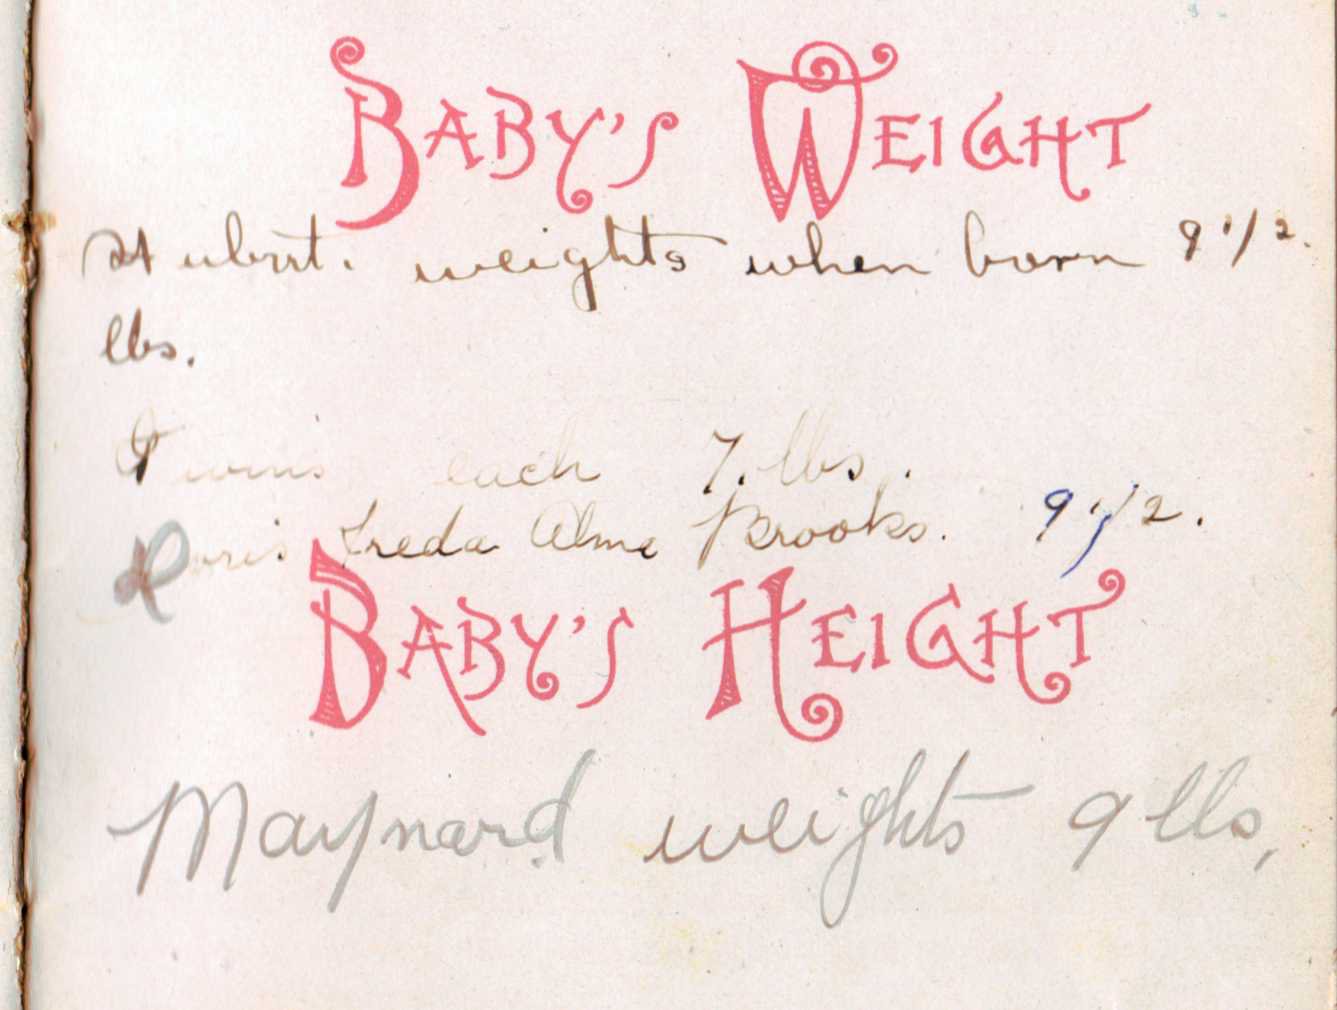 BABY'S WEIGHT
Hubert. weights when born 9 1/2.
lbs.
Twins each 7. lbs.
Doris Freda Alma Brooks. 9 1/2.
BABY'S HEIGHT
Maynard weights 9 lbs,